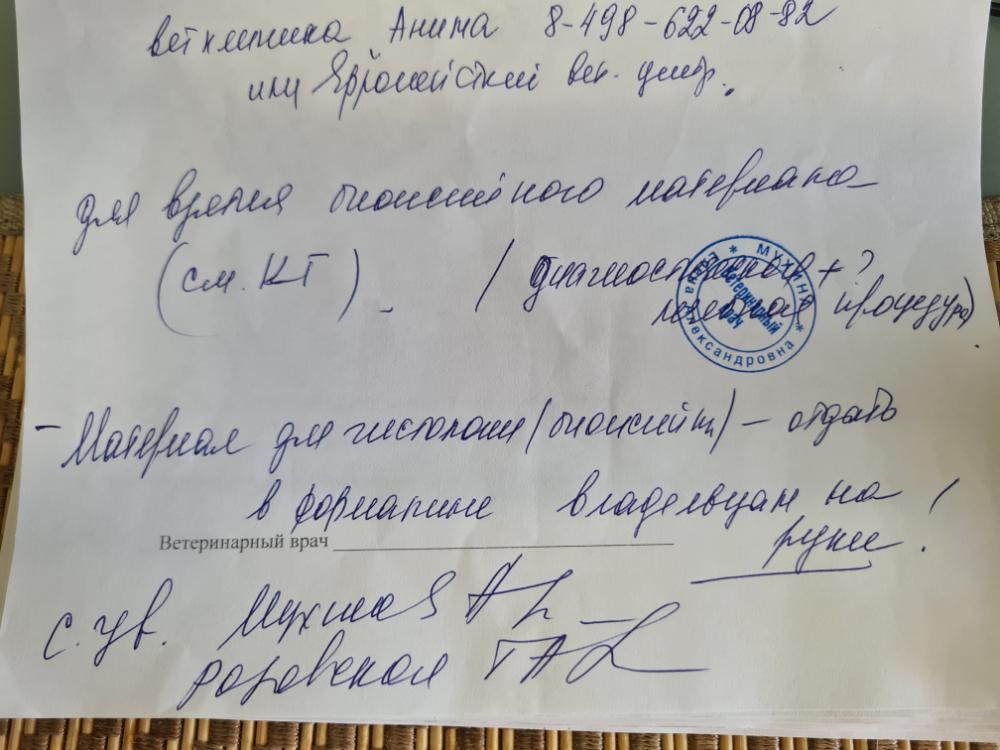 ветклиника Анима 8-498-622-08-82
или Европейский вет. центр.
для взятия биопсийного материала
(см. КТ) - (диагностическая + ?
лечебная процедура)
МУХИНА Елена Александровна
Ветеринарный врач
- Материал для гистологии (биопсийный) - отдать
в формалине владельцам на
руки!
Ветеринарный врач
с. ув. Мухина Е А
Роговская ТА